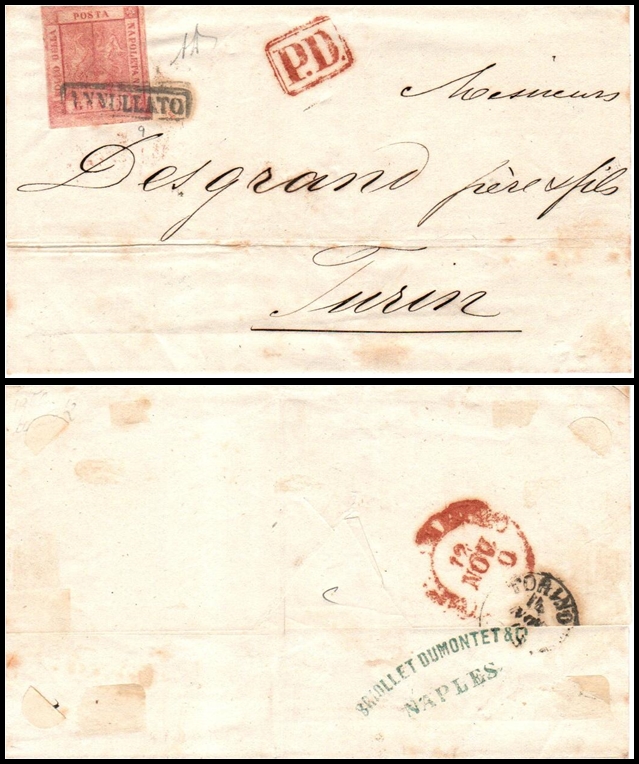 POSTA
NAPOLETANA
DELLA
ANNULLATO
P.D.
9
Messieurs
Desgrand père & fils
Turin
12
NOV
TORINO
14
DUMONTET & C
NAPLES